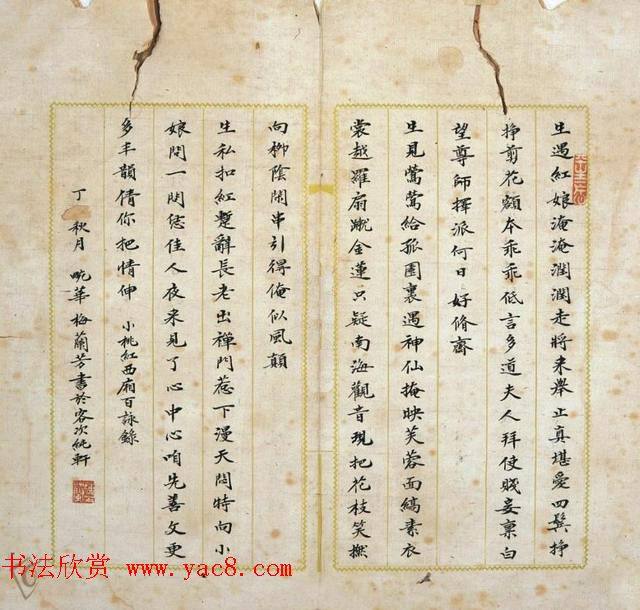 生遇紅娘淹淹潤潤走將来舉止真堪愛四鬓挣
挣剪花額本乖乖低言多道夫人拜使賤妾稟白
望尊師择派何日好脩齋
生見鶯鶯給孤園裏遇神仙掩映芙蓉面縞素衣
裳越羅扇蹴金蓮只疑南海觀音現把花枝笑撚
向柳陰閒串引得俺似風顛
生私扣紅蹔辭長老出禪門惹下漫天閙特向小
娘問一問恁佳人夜来見了心中心咱先善文更
多丰韻倩你把情伸 小桃紅西廂百詠錄
丁 秋月 畹華梅蘭芳書於客次純軒
书法欣赏 www.yac8.com